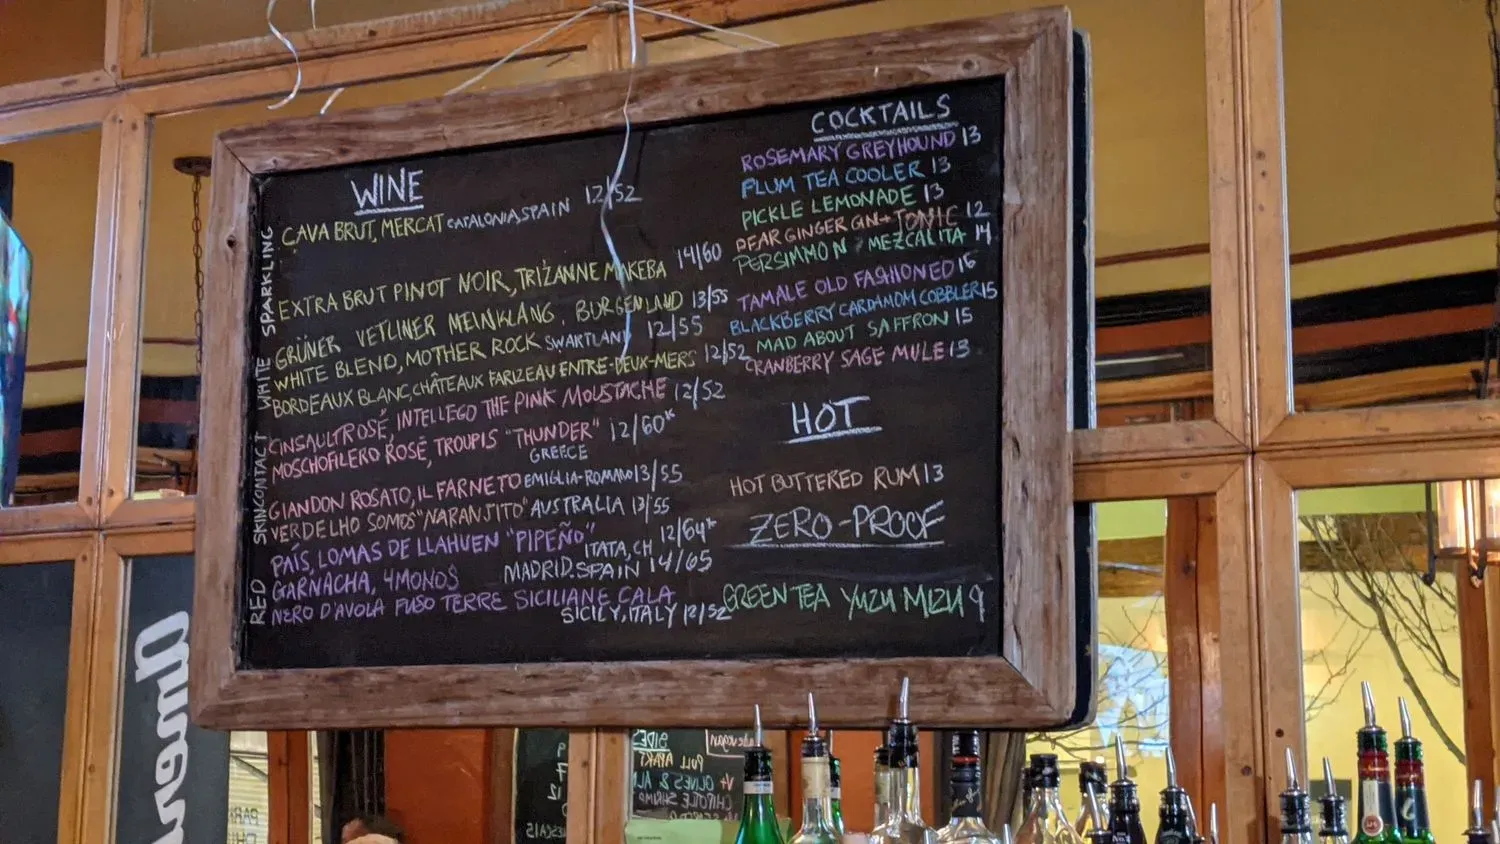 WINE
SPARKLING
CAVA BRUT, MERCAT CATALONIA, SPAIN 12/52
EXTRA BRUT PINOT NOIR, TRIZANNE MAKEBA 14/60
WHITE
GRÜNER VETLINER MEINKLANG, BURGENLAND 13/55
WHITE BLEND, MOTHER ROCK SWARTLAND 12/55
BORDEAUX BLANC, CHÂTEAUX FARIZEAU ENTRE-DEUX-MERS 12/52
SKINCONTACT
CINSAULT ROSÉ, INTELLEGO THE PINK MOUSTACHE 12/52
MOSCHOFILERO ROSÉ, TROUPIS "THUNDER" 12/60*
GREECE
GIANDON ROSATO, IL FARNETO EMIGLIA-ROMANO 13/55
VERDELHO SOMOS "NARANJITO" AUSTRALIA 13/55
RED
PAÍS, LOMAS DE LLAHUEN "PIPEÑO" 12/64*
ITATA, CH
GARNACHA, 4MONOS MADRID. SPAIN 14/65
NERO D'AVOLA FUSO TERRE SICILIANE CALA
SICILY, ITALY 12/52
COCKTAILS
ROSEMARY GREYHOUND 13
PLUM TEA COOLER 13
PICKLE LEMONADE 13
PEAR GINGER GIN + TONIC 12
PERSIMMON MEZCALITA 14
TAMALE OLD FASHIONED 16
BLACKBERRY CARDAMOM COBBLER 15
MAD ABOUT SAFFRON 15
CRANBERRY SAGE MULE 13
HOT
HOT BUTTERED RUM 13
ZERO-PROOF
GREEN TEA YUZU MIZU 9
SIDES
PULL APART
OLIVES & AL
CHIPOTLE SHRIMP